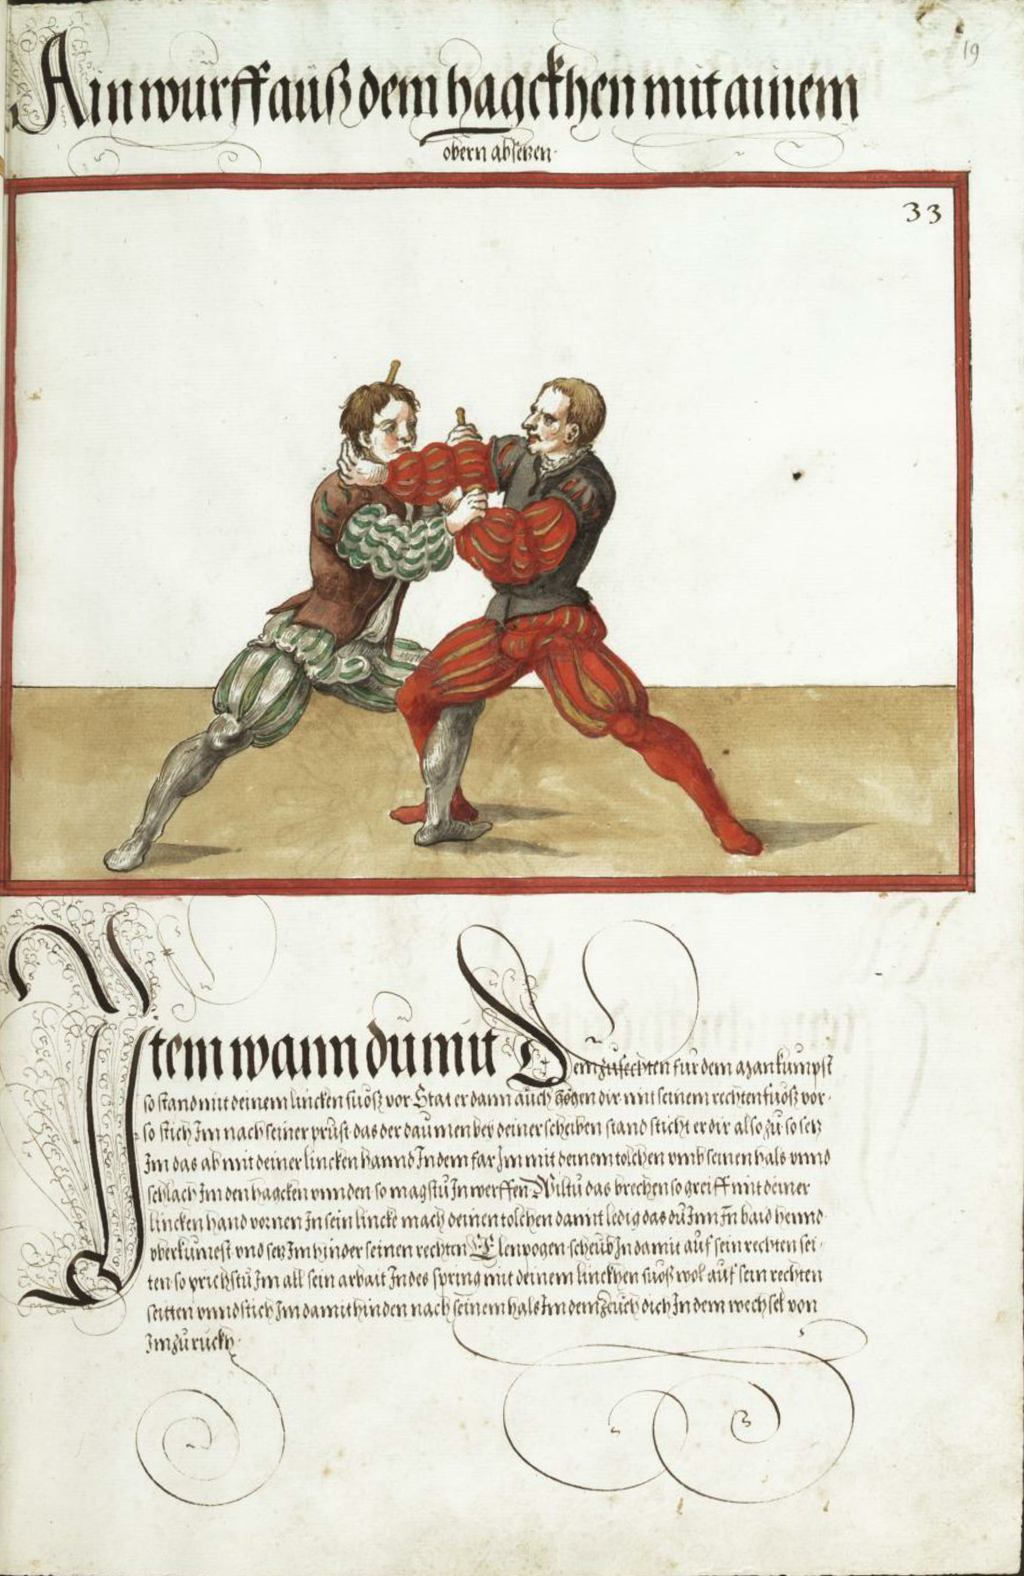 19
Ain wurff auß dem hagckhen mit ainem
obern absetzen·
33
Item wann du mit Dem zufechten für dem man kumpst
so stand mit deinem lincken fuosz vor Stat er dann auch gögen dir mit seinem rechten fuosz vor·
so stich Im nach seiner prust das der daumen beÿ deiner scheiben stand sticht er dir also zů so setz
Im das ab mit deiner lincken hannd Indem far Im mit deinem tolchen umb seinen hals vnnd
schlach Im den hagcken vnnden so magstu In werffen Wiltu das brechen so greiff mit deiner
lincken hand vornen In sein lincke mach deinen tolchen damit ledig das du Inn In baid hennd
vberkumest vnd setz Im hinder seinen rechten Elenpogen scheub In damit auf sein rechten sei·
ten so prichstu Im all sein arbait Indes spring mit deinem linckhen fuosz wol auf sein rechten
seitten vnnd stich Im damit hinden nach seinem hals Im dem zeuch dich In dem wechsel von
Im zu ruckh·